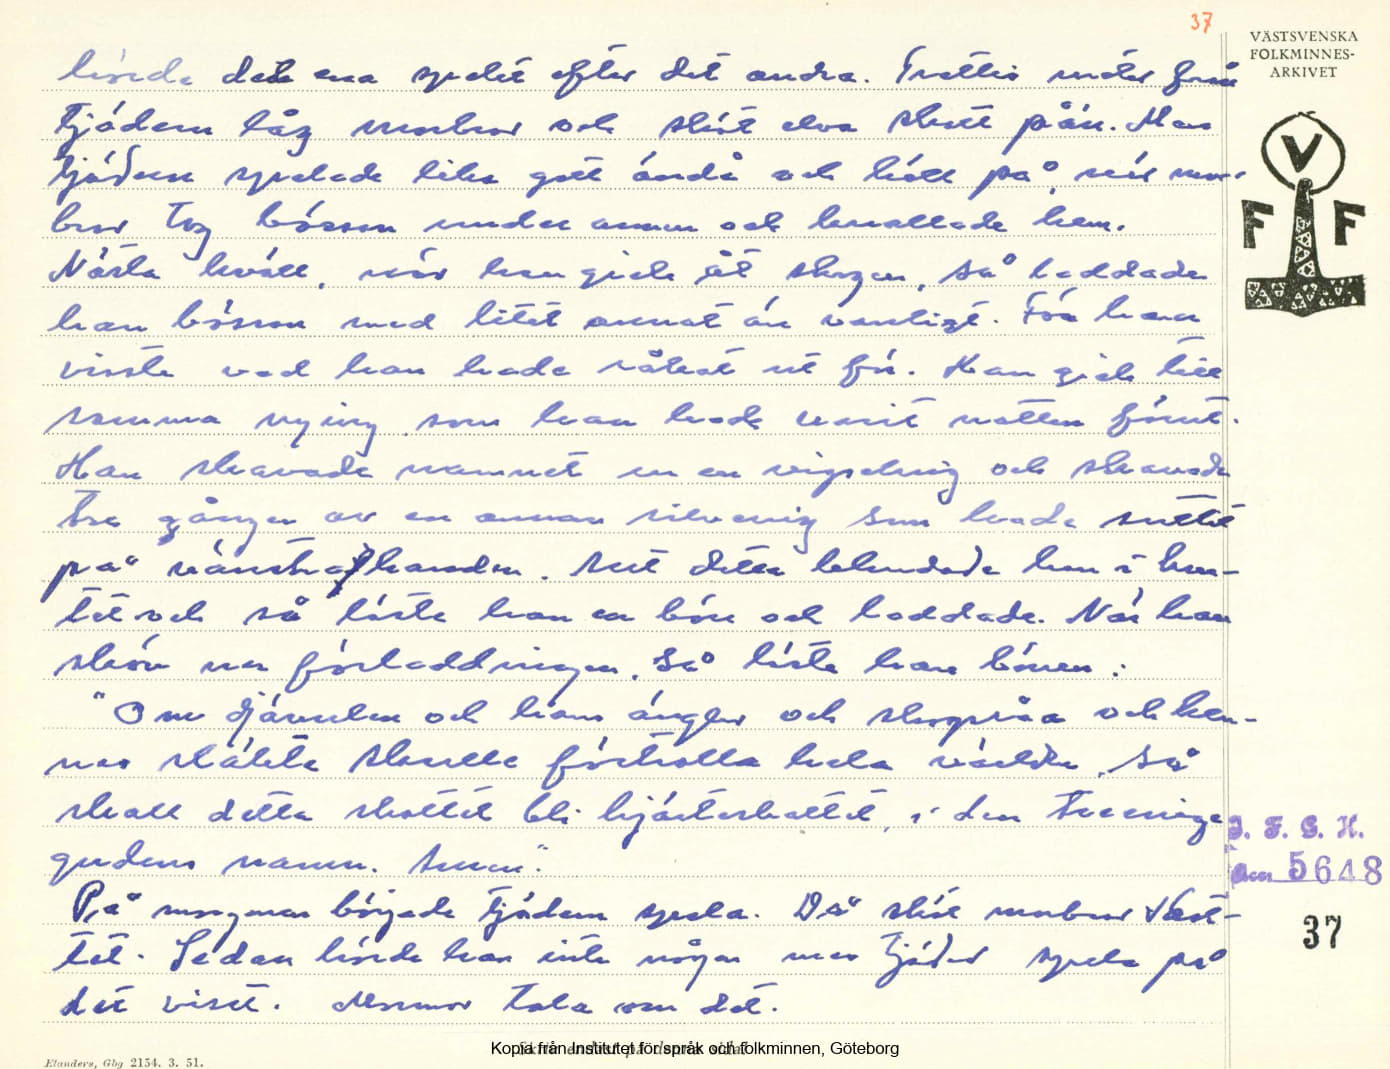 37
VÄSTSVENSKA
FOLKMINNES-
ARKIVET
hörde det ena spelet efter det andra. Trettio meter från
tjädern låg morbror och sköt elva skott på'n. Men
tjädern spelade lika gott ändå och höll på, när mor-
bror tog bössan under armen och knallade hem.
Nästa kväll, när han gick åt skogen, så laddade
han bössan med litet annat än vanligt. För han
visste vad han hade råkat ut för. Han gick till
samma mying som han hade varit natten förut.
Han skavade namnet ur en vigselring och skavade
tre gånger av en annan silverring som hade suttit
på vänstra handen. Allt detta blandade han i kru-
tet och så läste han en bön och laddade. När han
sköv ner förladdningen, så läste han bönen:
"Om djävulen och hans änglar och skogsråa och hen-
nes släkte skulle förtrolla hela världen, så
skall detta skottet bli hjärteskottet, i den treenige
gudens namn. Amen".
På morgonen började tjädern spela. Då sköt morbror skot-
tet. Sedan hörde han inte någon mer tjäder spela på
det viset. Mormor tala om det.
V
F F
I. F. G. H.
5648
37
Kopia från Institutet för språk och folkminnen, Göteborg
Elanders, Gbg 2154. 3. 51.